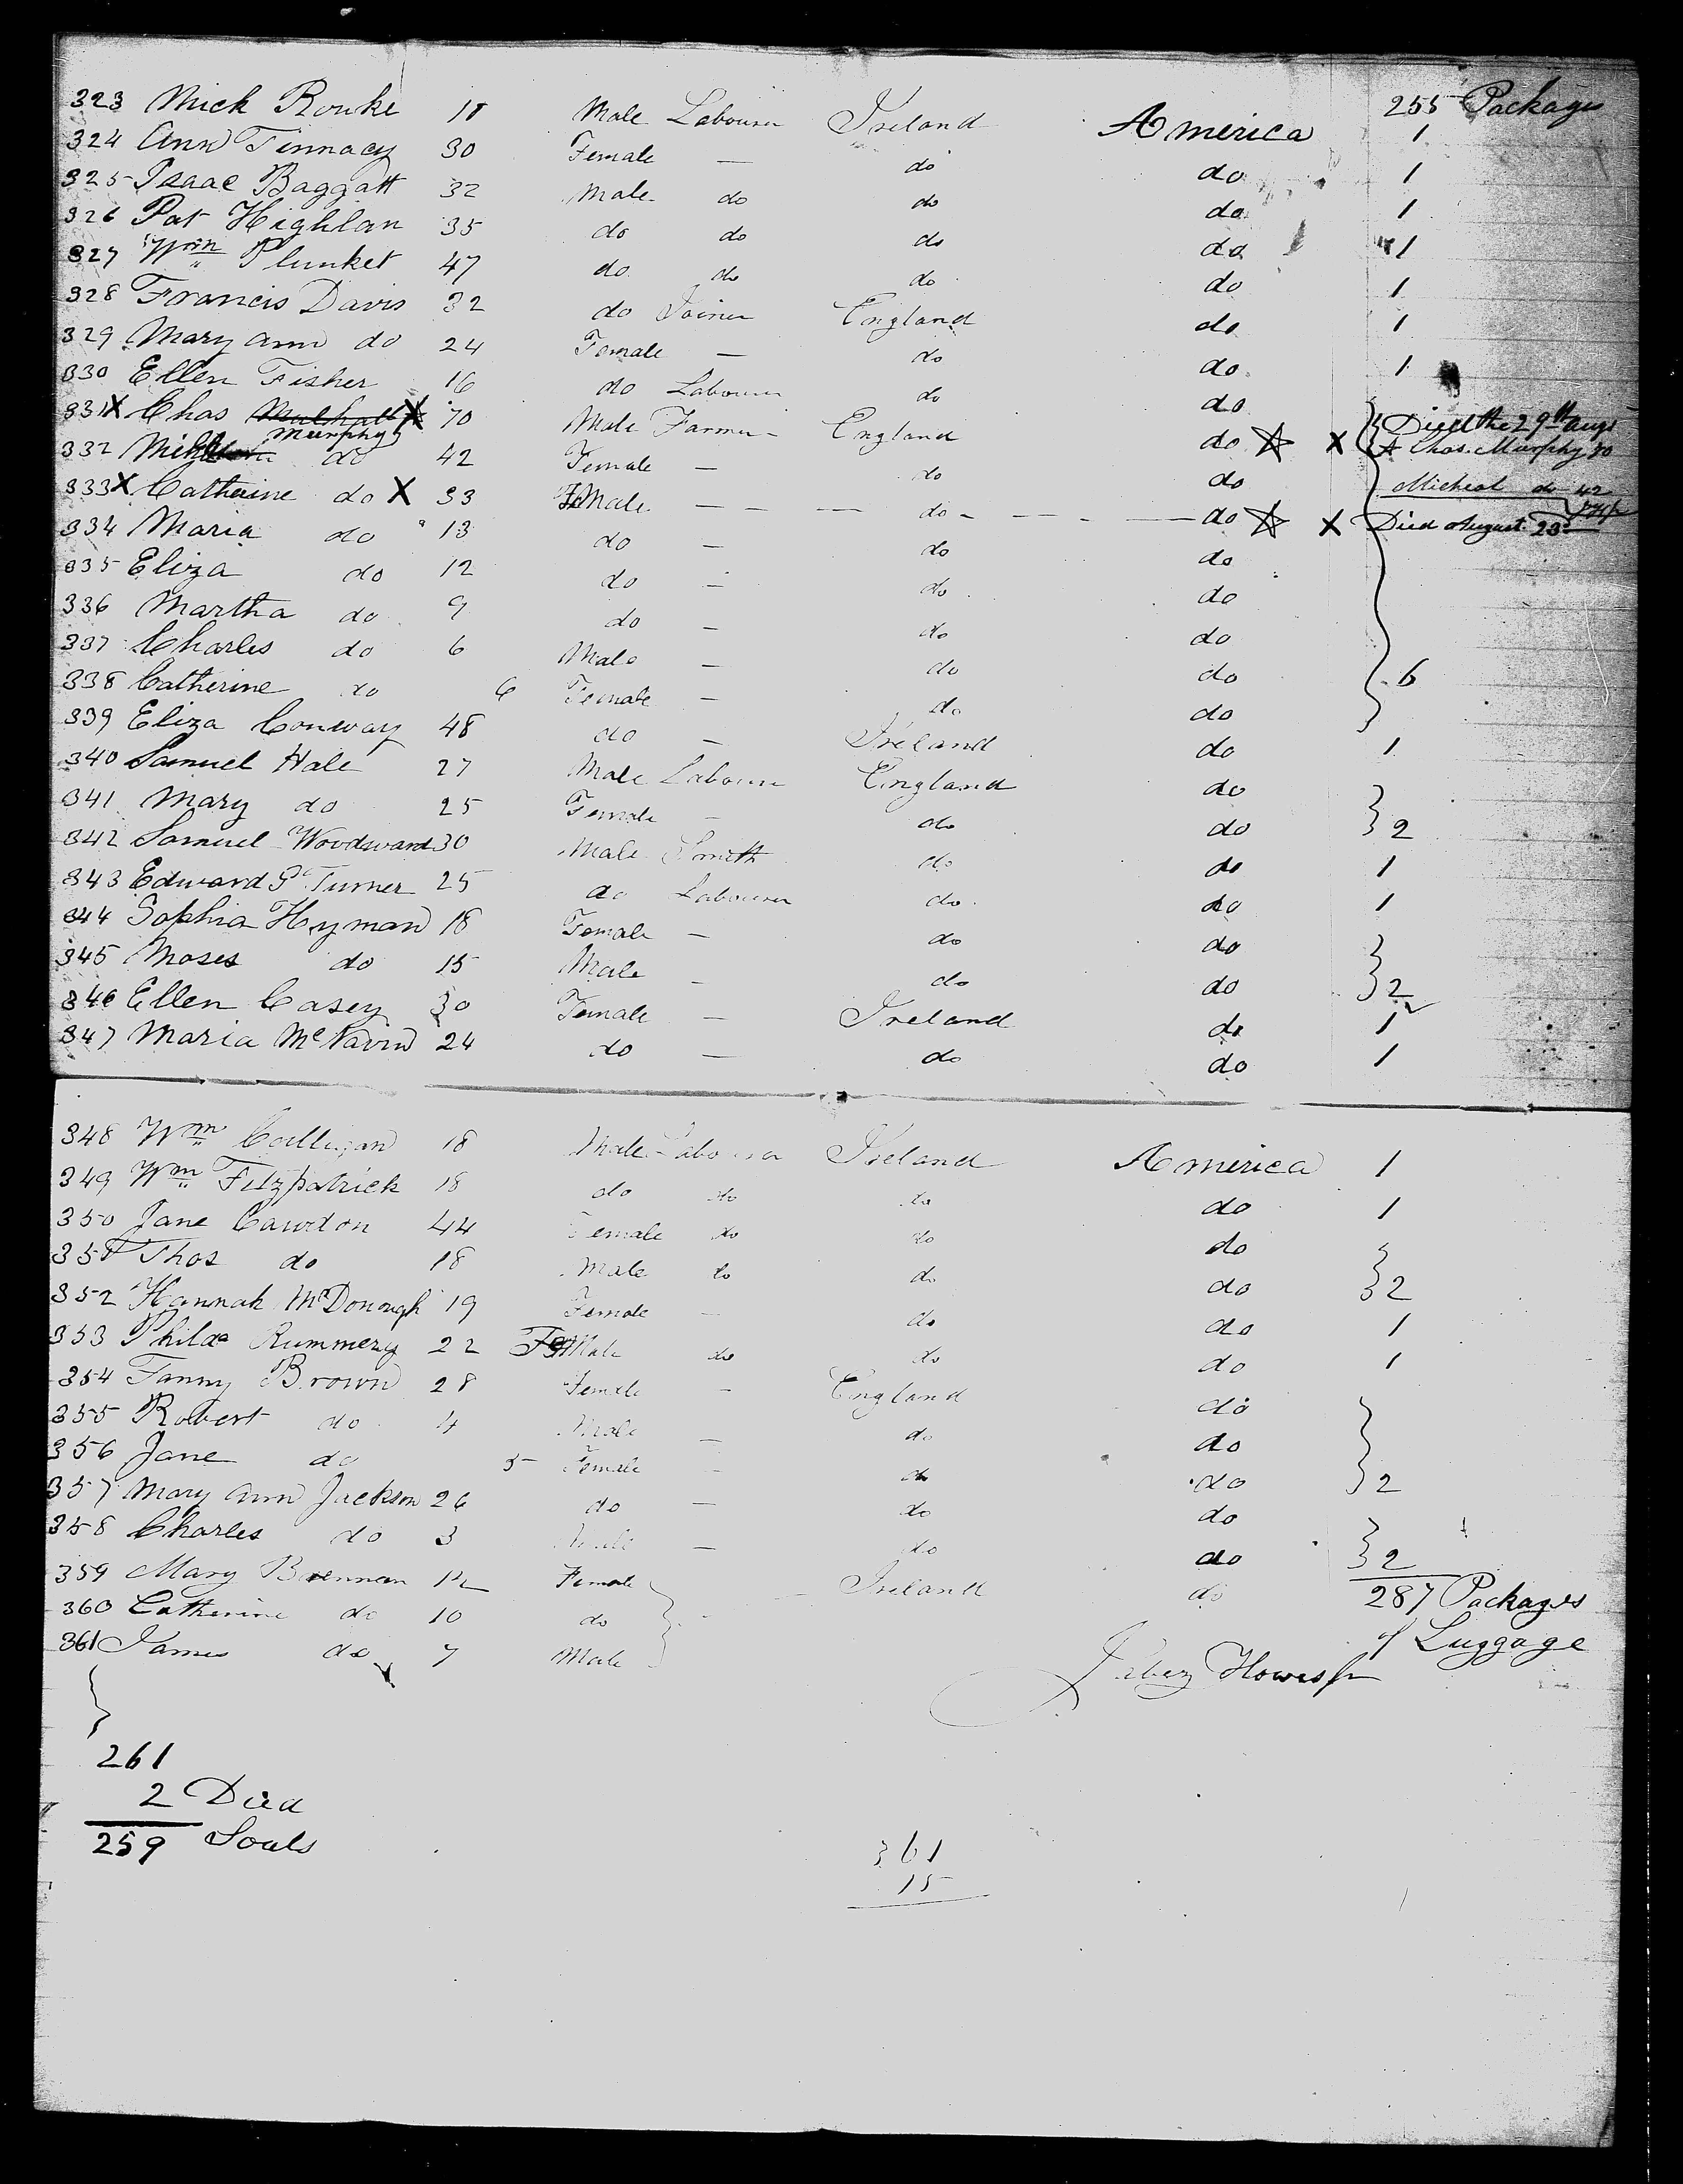 255 Packages
323 Mick Rourke 18 Male Labourer Ireland America 1
324 Ann Finnacy 30 Female — do do 1
325 Isaac Baggatt 32 Male do do do 1
326 Pat Highlan 35 do do do do 1
327 Wm Plunket 47 do do do do 1
328 Francis Davis 32 do Joiner England do 1
329 Mary Ann do 24 Female — do do 1
330 Ellen Fisher 16 do Labourer do do
331 X Chas Mulhall X 70 Male Farmer England do X Died the 29th Augt
Murphy
A Chas. Murphy 70
332 do 42 Female — do do Micheal do 42
333 X Catherine do X 33 Female — — — do — — — do X Died August 23
334 Maria do 13 do — do do
335 Eliza do 12 do — do do
336 Martha do 9 do — do do
337 Charles do 6 Male — do do 6
338 Catherine do 6 Female — do do
339 Eliza Conway 48 do — Ireland do 1
340 Samuel Hale 27 Male Labourer England do
341 Mary do 25 Female — do do 2
342 Samuel Woodward 30 Male Smith do do 1
343 Edward P Turner 25 do Labourer do do 1
344 Sophia Hyman 18 Female — do do
345 Moses do 15 Male — do do 2
346 Ellen Casey 30 Female — Ireland do 1
347 Maria McNavin 24 do — do do 1
348 Wm Calligan 18 Male Labourer Ireland America 1
349 Wm Fitzpatrick 18 do do do do 1
350 Jane Cawdon 44 Female do do do
351 Thos do 18 Male do do do 2
352 Hannah McDonough 19 Female — do do 1
353 Philda Rummery 22 FeMale do do do 1
354 Fanny Brown 28 Female — England do
355 Robert do 4 Male — do do
356 Jane do 5 Female — do do 2
357 Mary Ann Jackson 26 do — do do
358 Charles do 3 Male — do do 2
359 Mary Brennan 12 Female — Ireland do 287 Packages
360 Catherine do 10 do of Luggage
361 James do 7 Male
Jabez Howes Jr
261
2 Died
259 Souls
361
15